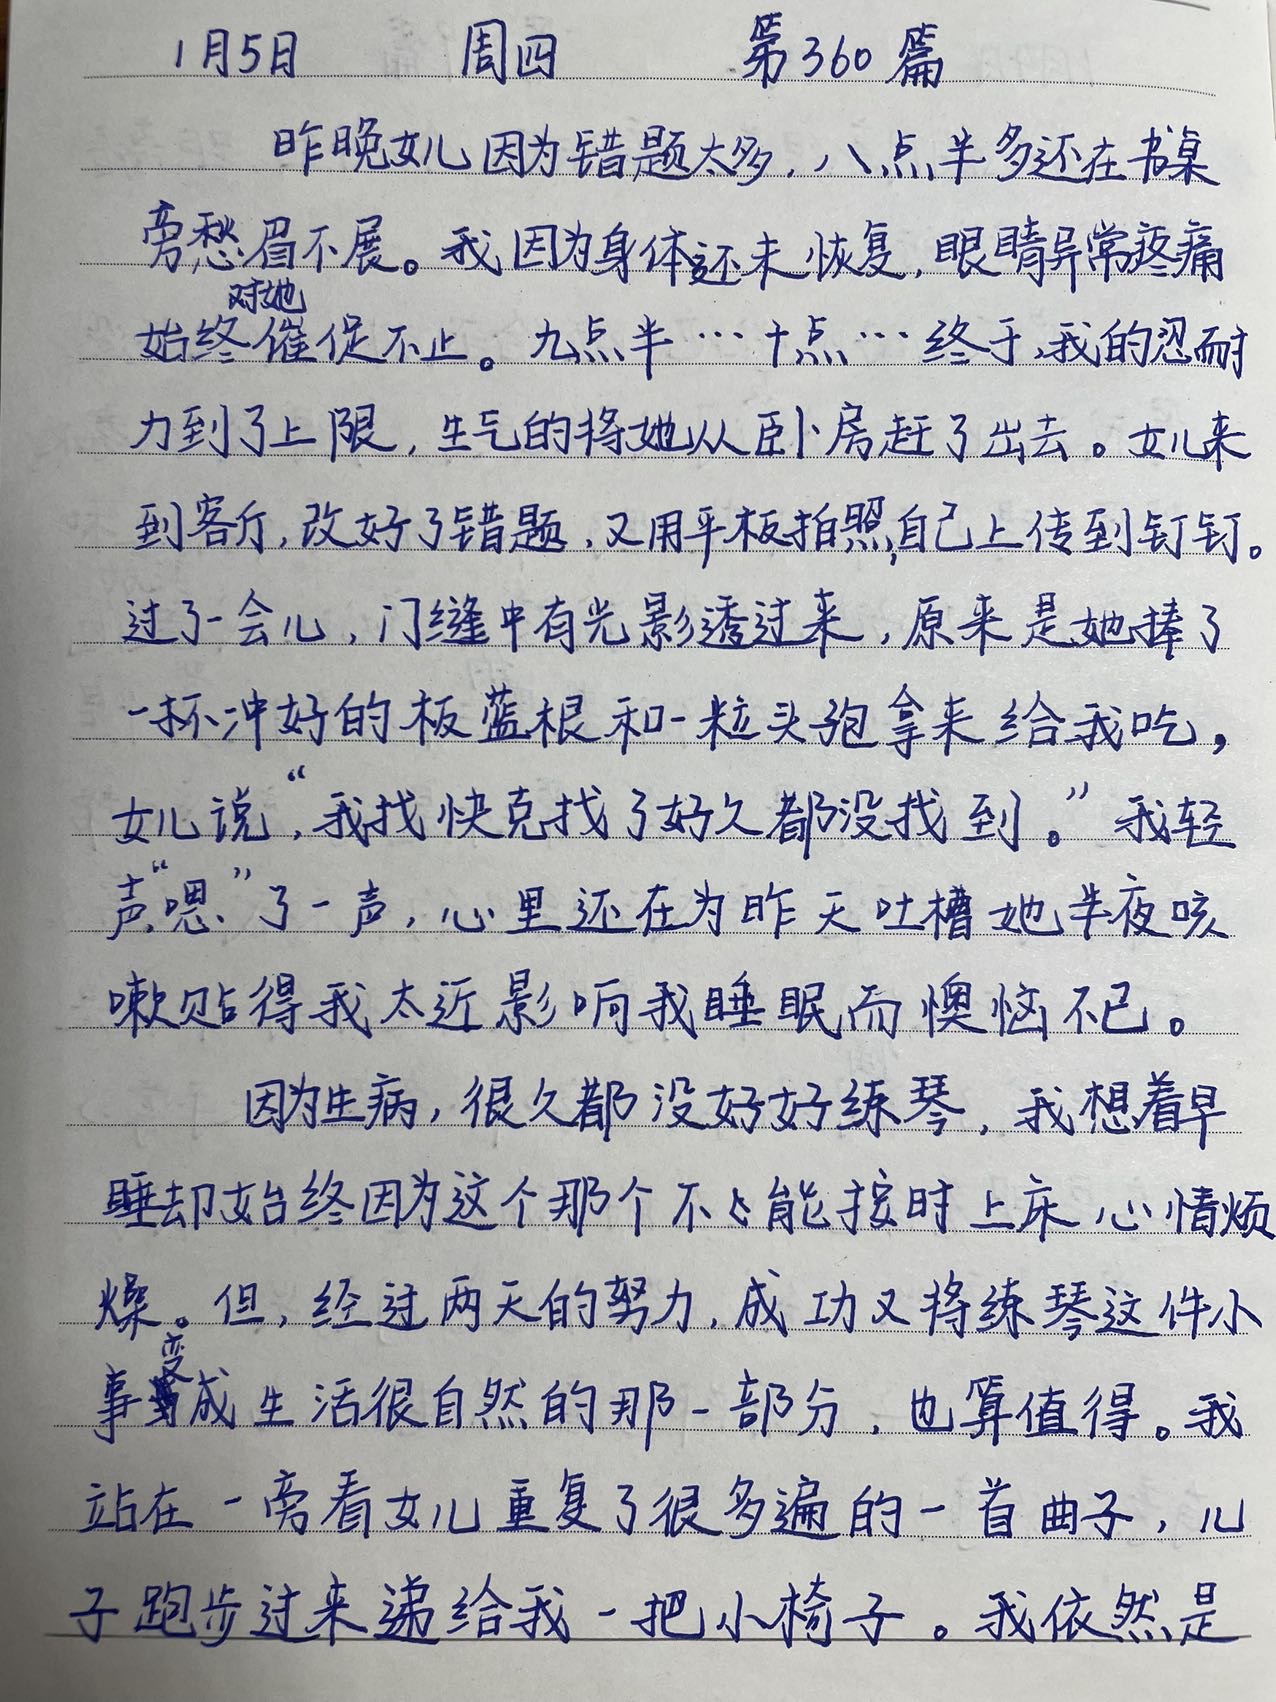 1月5日 周四 第360篇
昨晚女儿因为错题太多，八点半多还在书桌
旁愁眉不展。我因为身体还未恢复，眼睛异常疼痛
对她
始终催促不止。九点半…十点…终于，我的忍耐
力到了上限，生气的将她从卧房赶了出去。女儿来
到客厅，改好了错题，又用平板拍照，自己上传到钉钉。
过了一会儿，门缝中有光影透过来，原来是她捧了
一杯冲好的板蓝根和一粒头孢拿来给我吃，
女儿说，“我找快克找了好久都没找到。”我轻
声“嗯”了一声，心里还在为昨天吐槽她半夜咳
嗽贴得我太近影响我睡眠而懊恼不已。
因为生病，很久都没好好练琴，我想着早
睡却始终因为这个那个不能按时上床，心情烦
燥。但，经过两天的努力，成功又将练琴这件小
变
事成生活很自然的那一部分，也算值得。我
站在一旁看女儿重复了很多遍的一首曲子，儿
子跑步过来递给我一把小椅子。我依然是